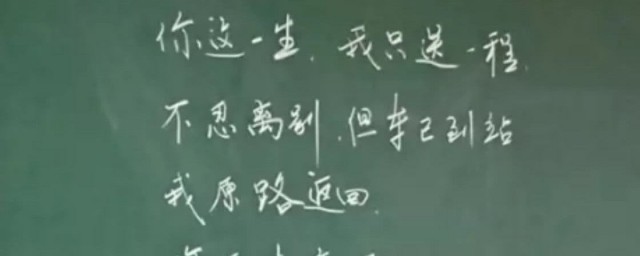 你这一生，我只送一程，
不忍离别，但车已到站
我原路返回，